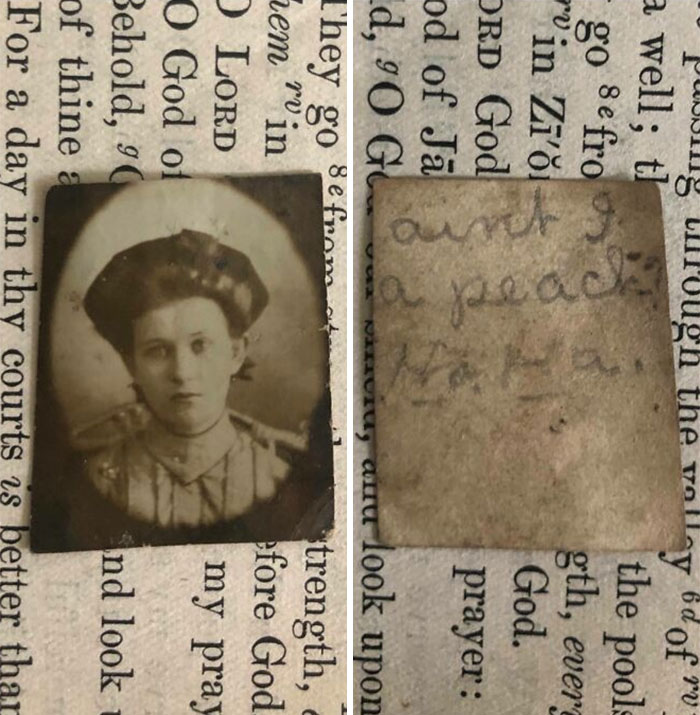 They go 8e from strength,
hem rv in efore God
O LORD my pray
O God of
Behold, g O nd look
of thine a
For a day in thy courts is better than
aint I
a peach
Ha Ha.
passing through the y 6u of
a well; th the pools
go 8e fro gth, every
rv in Zī′ŏ God.
ORD God prayer:
od of Jā
d, g O God our shield, and look upon